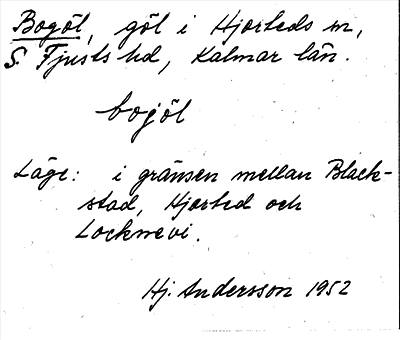 Bogöl, göl i Hjorteds sn,
S. Tjusts hd, Kalmar län.
bojöl
Läge: i gränsen mellan Black-
stad, Hjorted och
Locknevi.
Hj. Andersson 1952